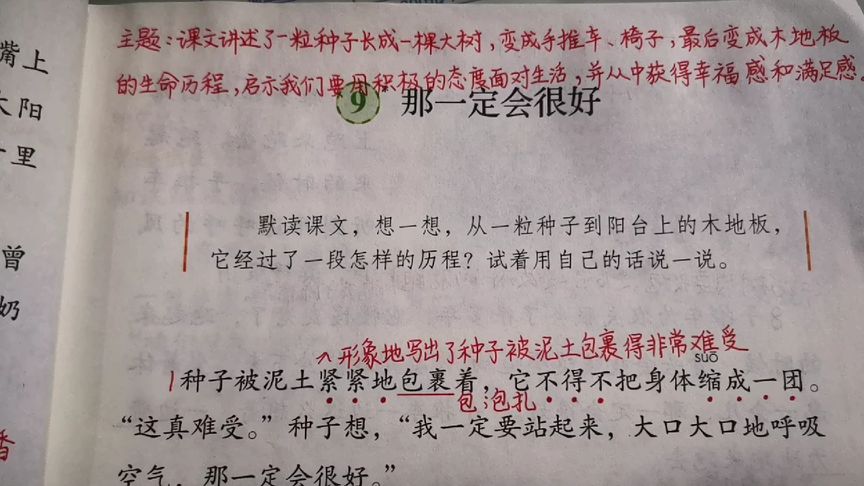 主题:课文讲述了一粒种子长成一棵大树,变成手推车、椅子,最后变成木地板
的生命历程,启示我们要用积极的态度面对生活,并从中获得幸福感和满足感。
9 那一定会很好
默读课文,想一想,从一粒种子到阳台上的木地板,
它经过了一段怎样的历程?试着用自己的话说一说。
形象地写出了种子被泥土包裹得非常难受
suō
1种子被泥土紧紧地包裹着,它不得不把身体缩成一团。
包:包扎
“这真难受。”种子想,“我一定要站起来,大口大口地呼吸
空气,那一定会很好。”
嘴上
太阳
里
曾
奶
香